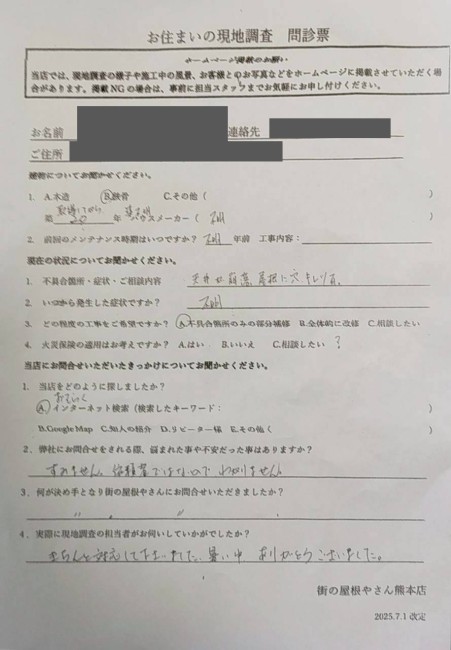 お住まいの現地調査 問診票
ホームページ掲載のお願い
当店では、現地調査の様子や施工中の風景、お客様とのお写真などをホームページに掲載させていただく場
合があります。掲載NGの場合は、事前に担当スタッフまでお気軽にお申し付けください。
お名前 連絡先
ご住所
建物についてお聞かせください。
1. A.木造 B.鉄骨 C.その他( )
築 20 年 ハウスメーカー( 不明 )
2. 前回のメンテナンス時期はいつですか? 不明 年前 工事内容:
現在の状況についてお聞かせください。
1. 不具合箇所・症状・ご相談内容 天井が崩落 屋根に穴
2. いつから発生した症状ですか? 不明
3. どの程度の工事をご希望ですか? A.不具合箇所のみの部分補修 B.全体的に改修 C.相談したい
4. 火災保険の適用はお考えですか? A.はい B.いいえ C.相談したい ?
当店にお問合せいただいたきっかけについてお聞かせください。
1. 当店をどのように探しましたか?
A.インターネット検索(検索したキーワード: )
B.Google Map C.知人の紹介 D.リピーター様 E.その他( )
2. 弊社にお問合せをされる際、悩まれた事や不安だった事はありますか?
すみません、依頼者ではないので わかりません。
3. 何が決め手となり街の屋根やさんにお問合せいただきましたか?
〃 〃
4. 実際に現地調査の担当者がお伺いしていかがでしたか?
きちんと対応して下さいました、暑い中 ありがとうございました。
街の屋根やさん熊本店
2025.7.1 改定